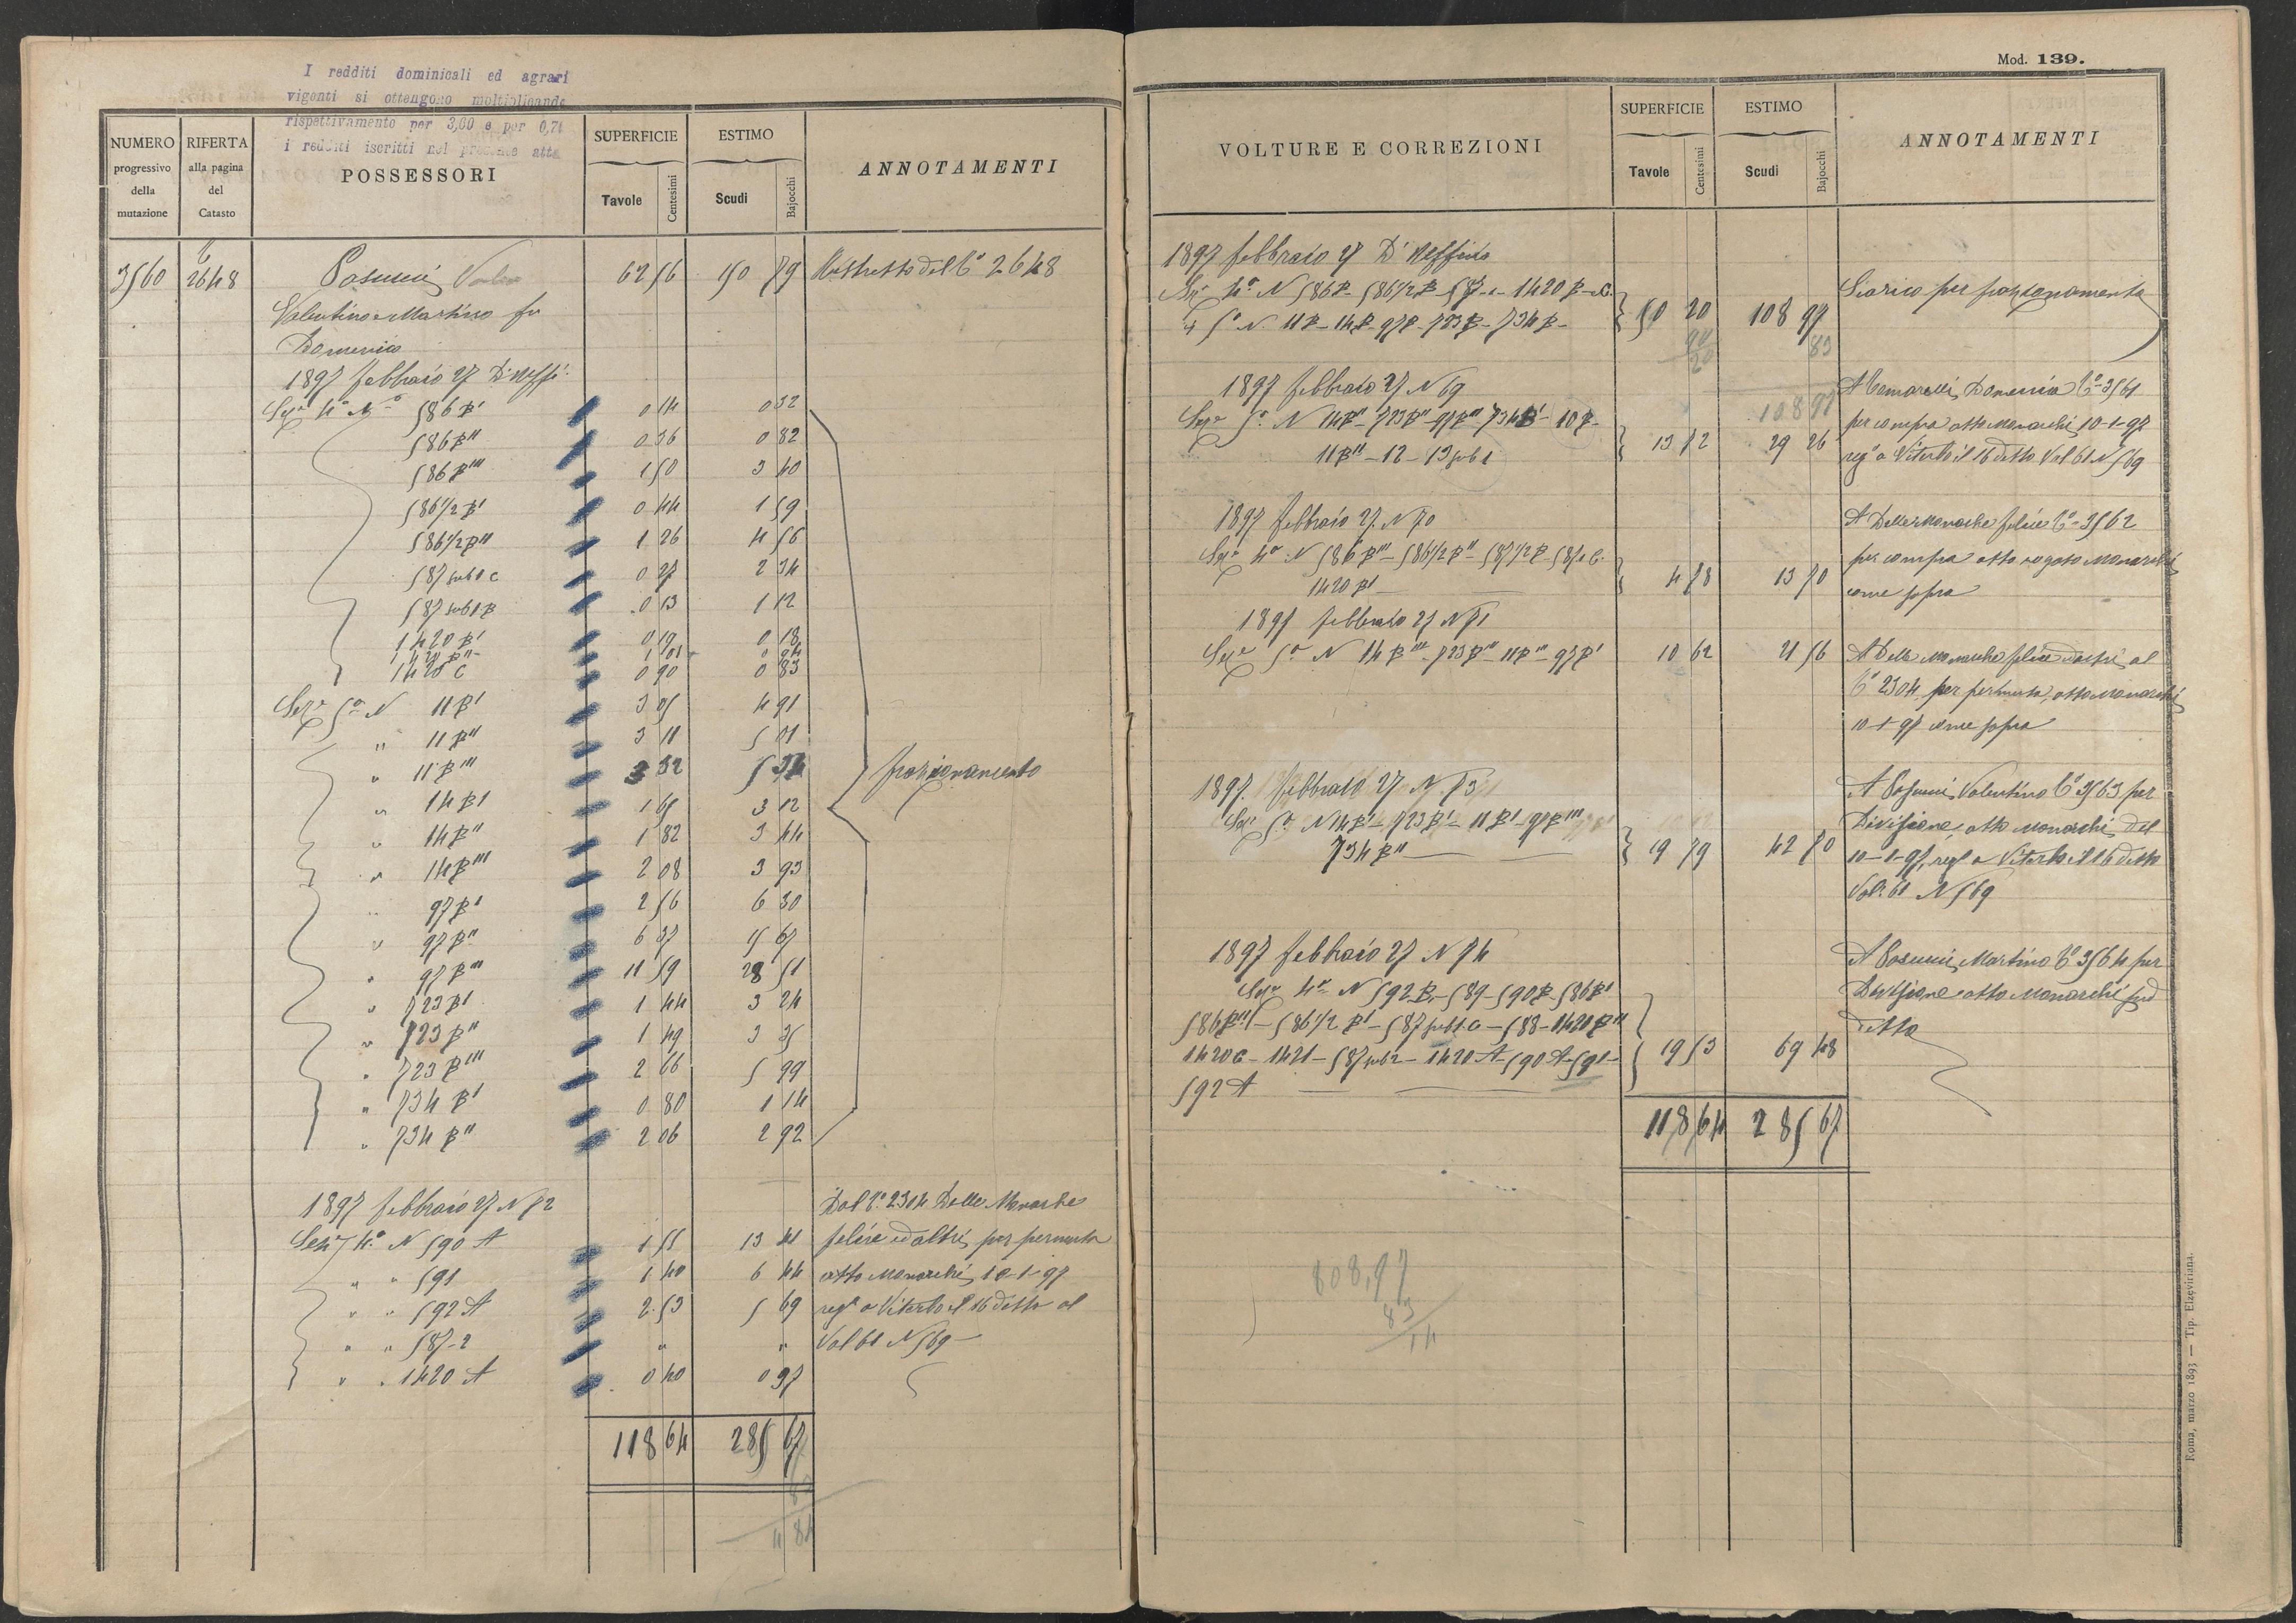 I redditi dominicali ed agrari
vigenti si ottengono moltiplicando
rispettivamente per 3,00 e per 0,71
i redditi iscritti nel presente atto
NUMERO progressivo della mutazione
RIFERTA alla pagina del Catasto
POSSESSORI
SUPERFICIE Tavole Centesimi
ESTIMO Scudi Bajocchi
ANNOTAMENTI
3560 2648 Pasucci 62 56 150 79 Ristretto del C° 2648
Valentino e Martino fu
Domenico
1897 febbraio 27 D'Uffi°
Sez° 4ª N° 586 B' 0 14 0 32
586 B'' 0 36 0 82
586 B''' 1 50 3 40
586 1/2 B' 0 44 1 59
586 1/2 B'' 1 26 4 56
587 sub 1 C 0 27 2 34
587 sub 1 B 0 13 1 12
1420 B' 0 19 0 18
1420 B'' 1 01 0 94
1420 C 0 90 0 83
Sez° 5ª N 11 B' 3 05 4 91
" 11 B'' 3 11 5 01
" 11 B''' 3 32 5 34
" 14 B' 1 65 3 12
frazionamento
" 14 B'' 1 82 3 44
" 14 B''' 2 08 3 93
" 97 B' 2 56 6 30
" 97 B'' 6 37 15 67
" 97 B''' 11 59 28 51
" 723 B' 1 44 3 24
" 723 B'' 1 49 3 35
" 723 B''' 2 66 5 99
" 734 B' 0 80 1 14
" 734 B'' 2 06 2 92
1897 febbraio 27 N 72 Dal C° 2304 Delle Monache
Sez° 4ª N 590 A 1 55 13 41 felice ed altri, per permuta
" " 591 1 40 6 44 atto Monarchi, 10-1-97
" " 592 A 2 53 5 69 reg° a Viterbo il 16 detto al
" " 587-2 " " Vol 61 N 569
" " 1420 A 0 40 0 97
118 64 285 67
4 84
Mod. 139.
VOLTURE E CORREZIONI
SUPERFICIE Tavole Centesimi
ESTIMO Scudi Bajocchi
ANNOTAMENTI
1897 febbraio 27 D'Uffizio
Sez° 4ª N 586 B - 586 1/2 B - 587-1 - 1420 B - C. Scarico per frazionamento
e 5ª N. 11 B - 14 B - 97 B - 723 B - 734 B - 50 20 108 97
83
1897 febbraio 27 N 69 A Camarelli, Domenica C° 3561
108 97
Sez° 5ª N 14 B'' - 723 B'' - 97 B'' - 734 B' - 10 B - per compra atto Monarchi, 10-1-97
11 B'' - 12 - 13 sub 1 13 72 29 26 reg° a Viterbo il 16 detto Vol 61 N 569
1897 febbraio 27. N 70 A Delle Monache felice C° 3562
Sez° 4ª N 586 B''' - 586 1/2 B'' - 587 1/2 B - 587 1 C. per compra atto rogato Monarchi
1420 B' 4 78 13 70 come sopra
1897 febbraio 27 N 71
Sez° 5ª N 14 B''' - 723 B''' - 11 B''' - 97 B' 10 62 21 56 A Delle Monache felice ed altri, al
C° 2304, per permuta, atto Monarchi
10-1-97 come sopra
1897. febbraio 27 N 73 A Pasucci, Valentino C° 3563 per
Sez° 5ª N 14 B' - 723 B' - 11 B' - 97 B''' Divisione, atto Monarchi, del
734 B'' 19 79 42 70 10-1-97, reg° a Viterbo il 16 detto
Vol. 61 N 569
1897 febbraio 27 N 74 A Pasucci, Martino C° 3564 per
Sez° 4ª N 592 B - 589 - 590 B - 586 B' Divisione atto Monarchi sud
586 B'' - 586 1/2 B' - 587 sub 1 - 588 - 1420 B'' detto
1420 C - 1421 - 587 sub 2 - 1420 A - 590 A - 591 - 19 53 69 48
592 A
118 64 285 67
808,97
83
14
Roma, marzo 1893 — Tip. Elzeviriana.